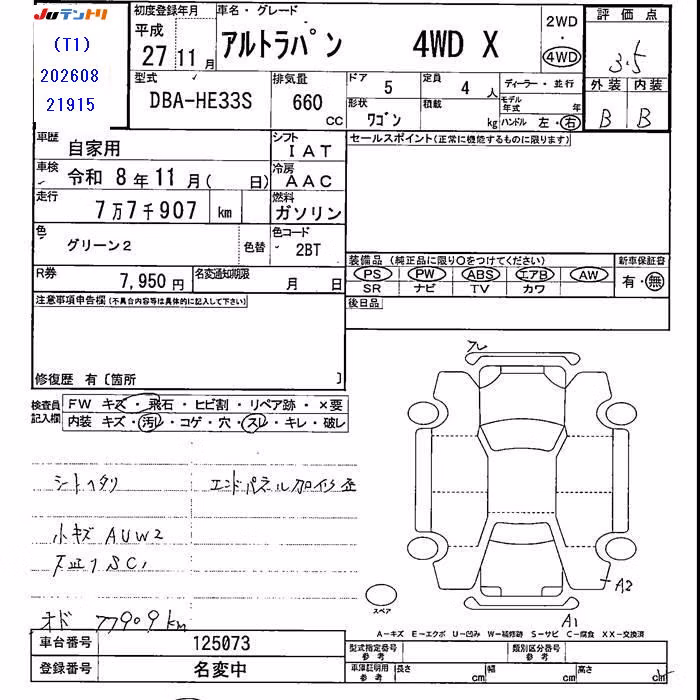 JUテントリ
(T1)
202608
21915
初度登録年月
平成
27 11月
車名・グレード
アルトラパン 4WD X
2WD
・
4WD
評価点
3.5
外装 内装
B B
型式
DBA-HE33S
排気量
660
cc
ドア
5
定員
4人
形状
ワゴン
積載
kg
ディーラー・並行
モデル年式 年
ハンドル 左・右
車歴
自家用
シフト
IAT
車検
令和 8年11月( 日)
冷房
AAC
走行
7万7千907 km
燃料
ガソリン
色
グリーン2
色替
色コード
2BT
R券
7,950円
名変通知期限
月 日
セールスポイント(正常に機能するものに限ります)
装備品(純正品に限り○をつけてください)
PS PW ABS エアB AW
SR ナビ TV カワ
新車保証書
有・無
後日品
注意事項申告欄(不具合内容等は具体的に記入して下さい)
修復歴 有〔箇所 〕
検査員記入欄
FW キズ・飛石・ヒビ割・リペア跡・×要
内装 キズ・汚レ・コゲ・穴・スレ・キレ・破レ
シートヘタリ
エンドパネル加修歪
小キズ AUW2
オド 77909km
A2
A1
スペア
A-キズ E-エクボ U-凹み W-補修跡 S-サビ C-腐食 XX-交換済
車台番号
125073
登録番号
名変中
型式指定番号
参考
類別区分番号
参考
車庫証明用
参考
長さ cm
幅 cm
高さ cm